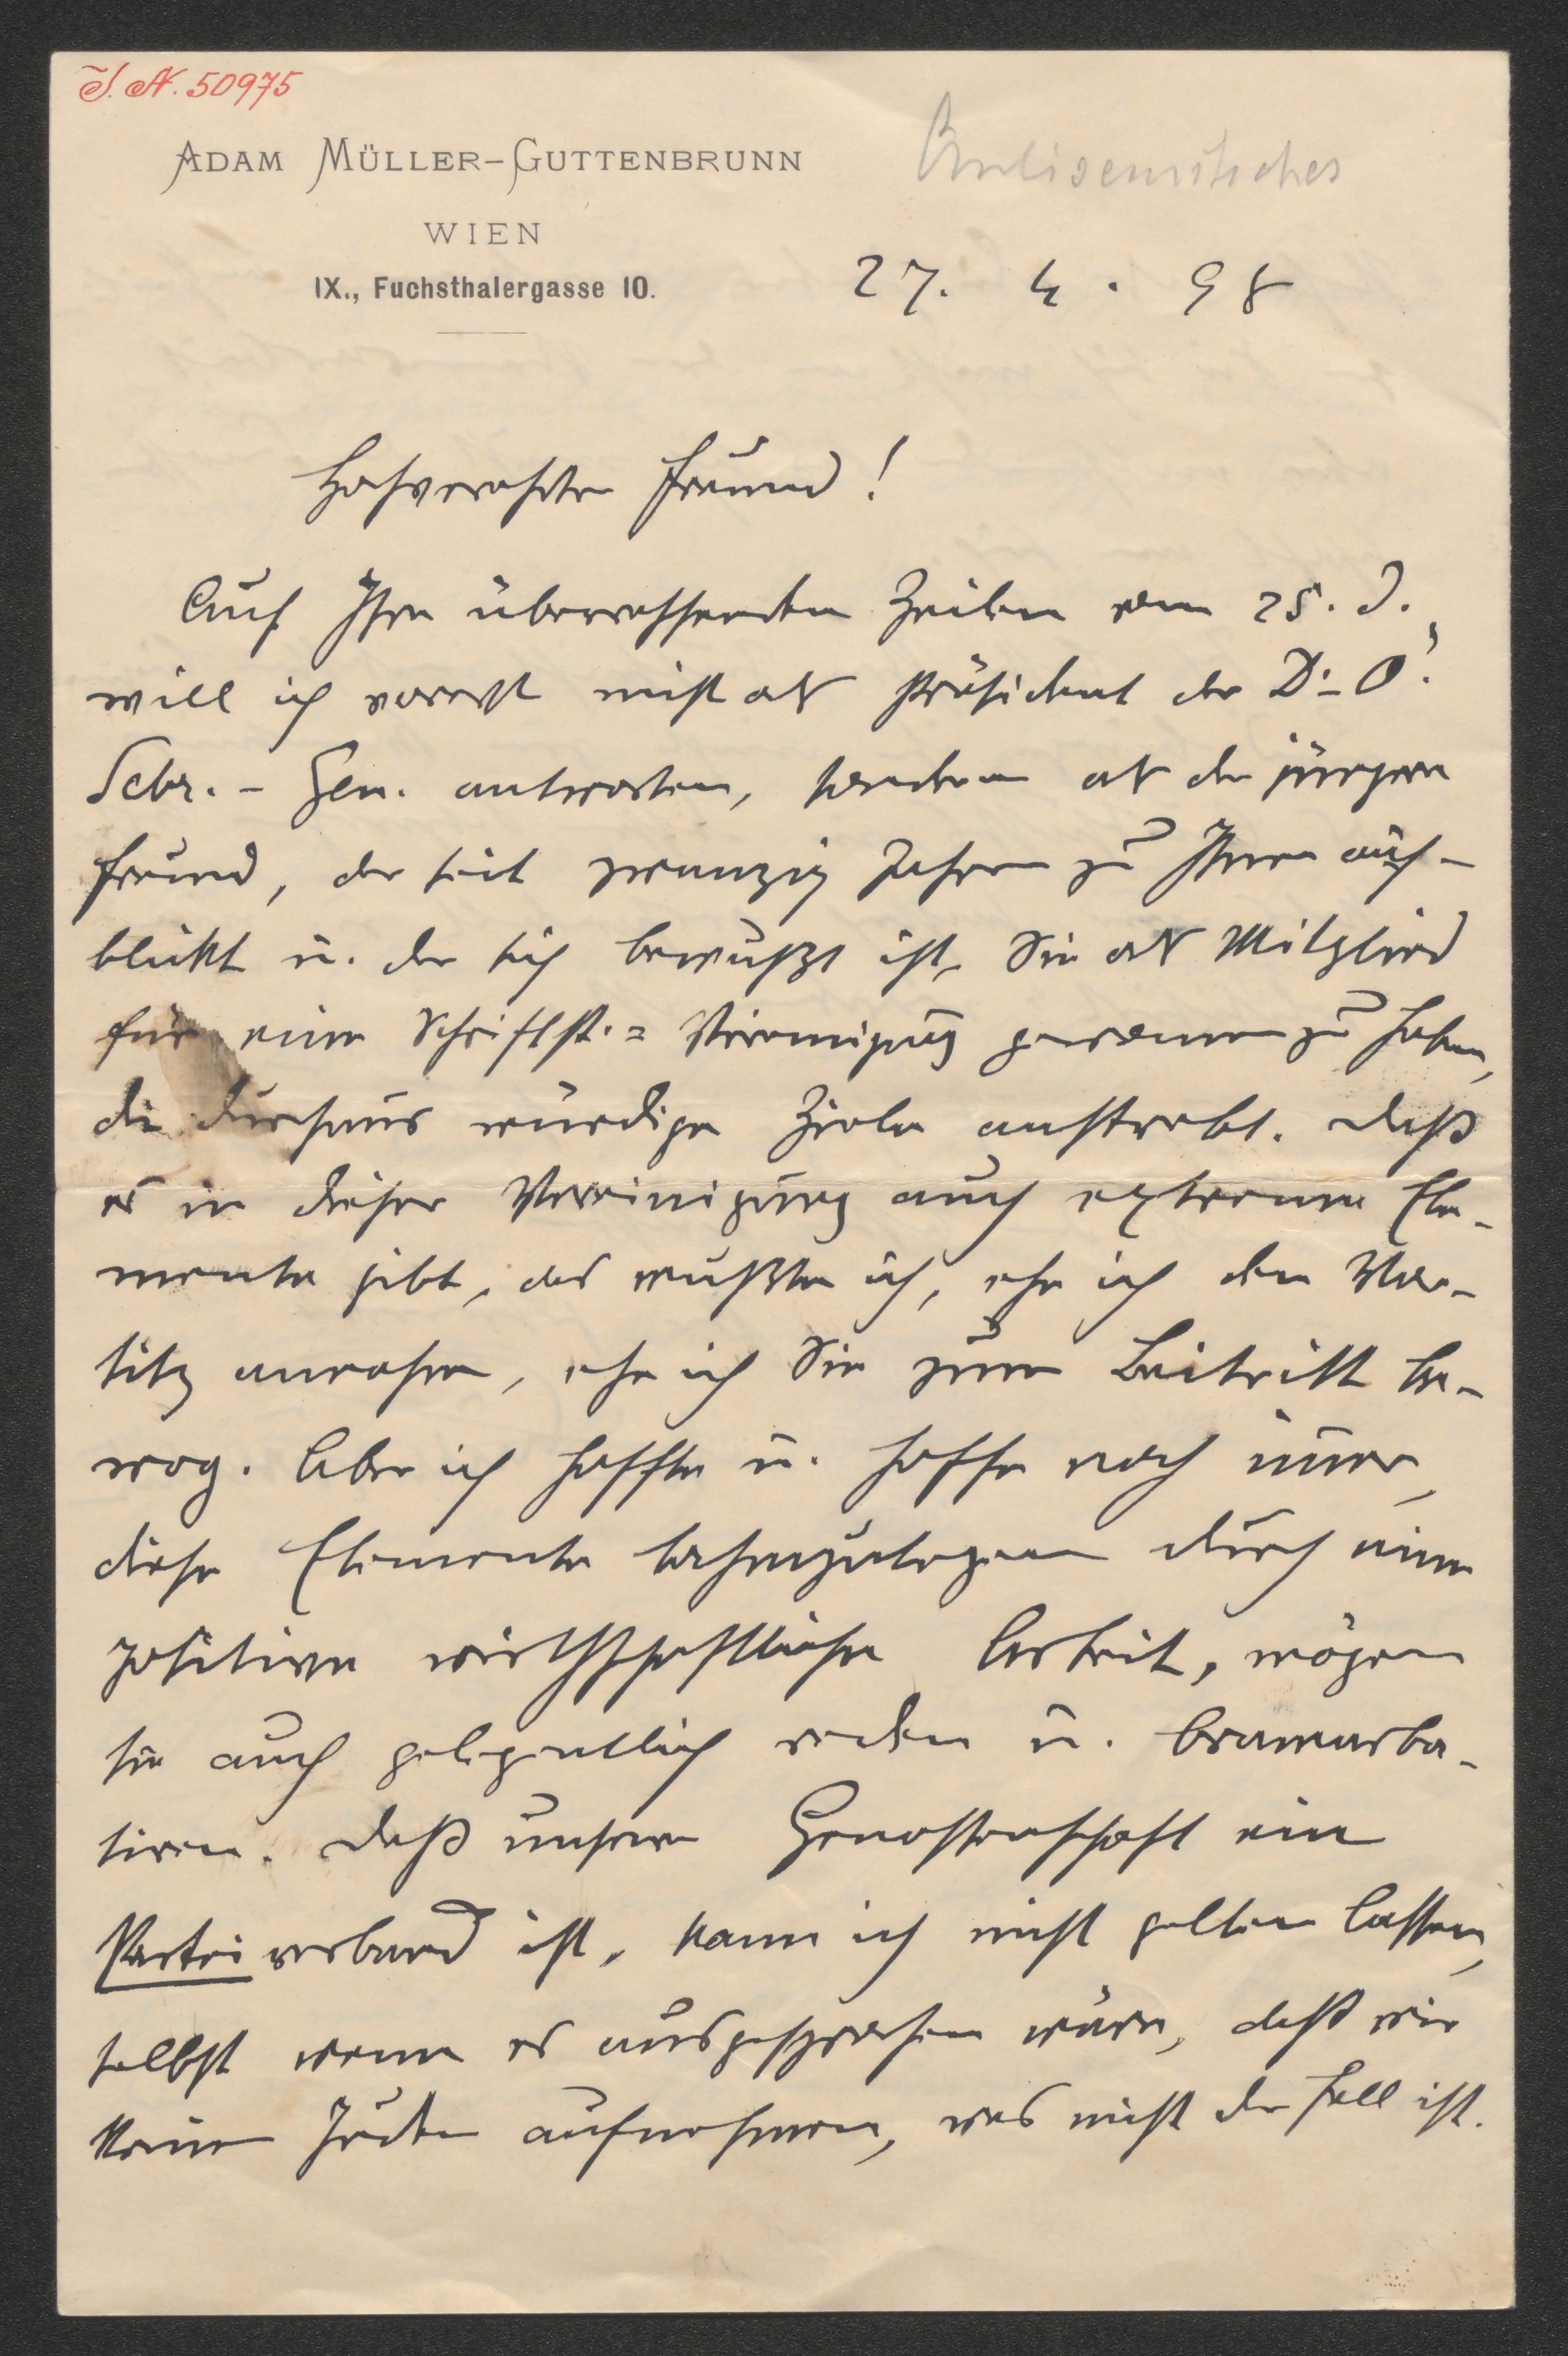 I. N. 50975
ADAM MÜLLER-GUTTENBRUNN
Antisemitisches
WIEN
IX., Fuchsthalergasse 10.
27. 4. 98
Hochverehrter Freund!
Auf Ihre überraschenden Zeilen vom 25. d.
will ich vorerst nicht als Präsident der D.-Ö.
Schr.-Gen. antworten, sondern als der jüngere
Freund, der seit zwanzig Jahren zu Ihnen auf-
blickt u. der sich bewußt ist, Sie als Mitglied
für eine Schriftst.= Vereinigung gewonnen zu haben,
die durchaus würdige Ziele anstrebt. Daß
es in dieser Vereinigung auch extreme Ele-
mente gibt, das wußte ich, ehe ich den Vor-
sitz annahm, ehe ich Sie zum Beitritt be-
wog. Aber ich hoffte u. hoffe noch immer,
diese Elemente lahmzulegen durch eine
positive wirthschaftliche Arbeit, mögen
sie auch gelegentlich reden u. bramarba-
siren. Daß unsere Genossenschaft ein
Parteiverband ist, kann ich nicht gelten lassen,
selbst wenn es ausgesprochen wäre, daß wir
keine Juden aufnehmen, was nicht der Fall ist.